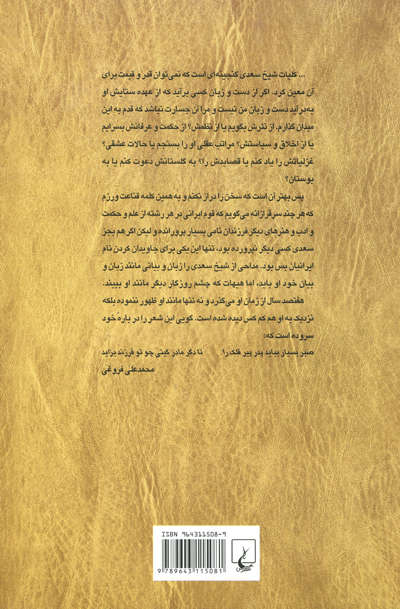 ... کلیات شیخ سعدی گنجینه‌ای است که نمی‌توان قدر و قیمت برای
آن معین کرد. اگر از دست و زبان کسی برآید که از عهده ستایش او
به‌درآید دست و زبان من نیست و مرا آن جسارت نباشد که قدم به این
میدان گذارم. از نثرش بگویم یا از نظمش؟ از حکمت و عرفانش بسرایم
یا از اخلاق و سیاستش؟ مراتب عقلی او را بسنجم یا حالات عشقی؟
غزلیاتش را یاد کنم یا قصایدش را؟ به گلستانش دعوت کنم یا به
بوستان؟
پس بهتر آن است که سخن را دراز نکنم و به همین کلمه قناعت ورزم
که هر چند سرفرازانه می‌گویم که قوم ایرانی در هر رشته از علم و حکمت
و ادب و هنرهای دیگر فرزندان نامی بسیار پرورانده ولیکن اگر هم بجز
سعدی کسی دیگر نپرورده بود، تنها این یکی برای جاویدان کردن نام
ایرانیان بس بود. مداحی از شیخ سعدی را زبان و بیانی مانند زبان و
بیان خود او باید، اما هیهات که چشم روزگار دیگر مانند او ببیند.
هفتصد سال از زمان او می‌گذرد و نه تنها مانند او ظهور ننموده بلکه
نزدیک به او هم کم کس دیده شده است. گویی این شعر را در باره خود
سروده است که:
صبر بسیار بباید پدر پیر فلک را تا دگر مادر گیتی چو تو فرزند بزاید
محمدعلی فروغی
ISBN 964311508-9
9 789643 115081